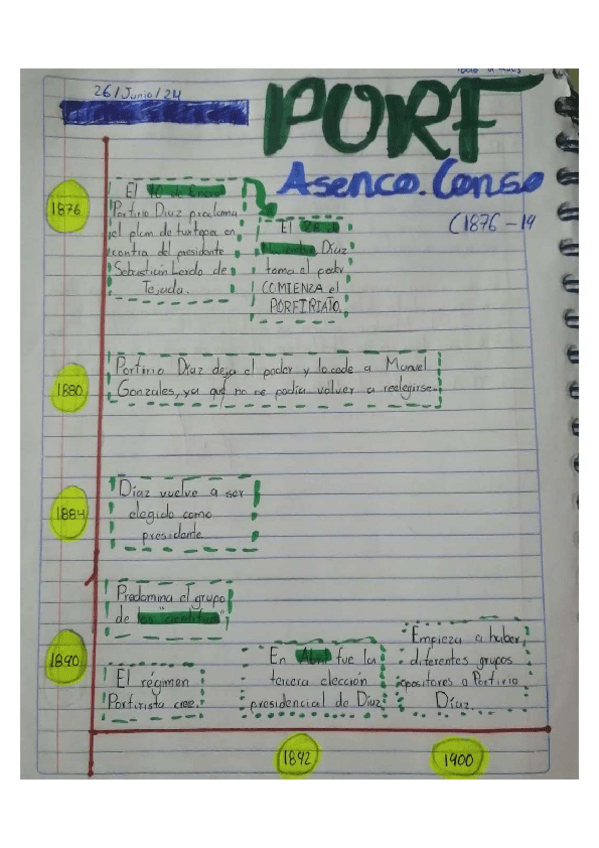 26/Junio/24
PORF
Asenco. Conso
(1876-19
1876
El 10 de Enero
Porfirio Díaz proclama
el plan de tuxtepec en
contra del presidente
Sebastián Lerdo de
Tejada.
El 28 de
Noviembre Díaz
toma el poder
COMIENZA el
PORFIRIATO.
1880
Porfirio Díaz deja el poder y lo cede a Manuel
Gonzales, ya que no se podía volver a reelegirse.
1884
Díaz vuelve a ser
elegido como
presidente
Predomina el grupo
de los "científicos"
1890
El régimen
Porfirista cree.
En Abril fue la
tercera elección
presidencial de Díaz
Empieza a haber
diferentes grupos
opositores a Porfirio
Díaz.
1892
1900